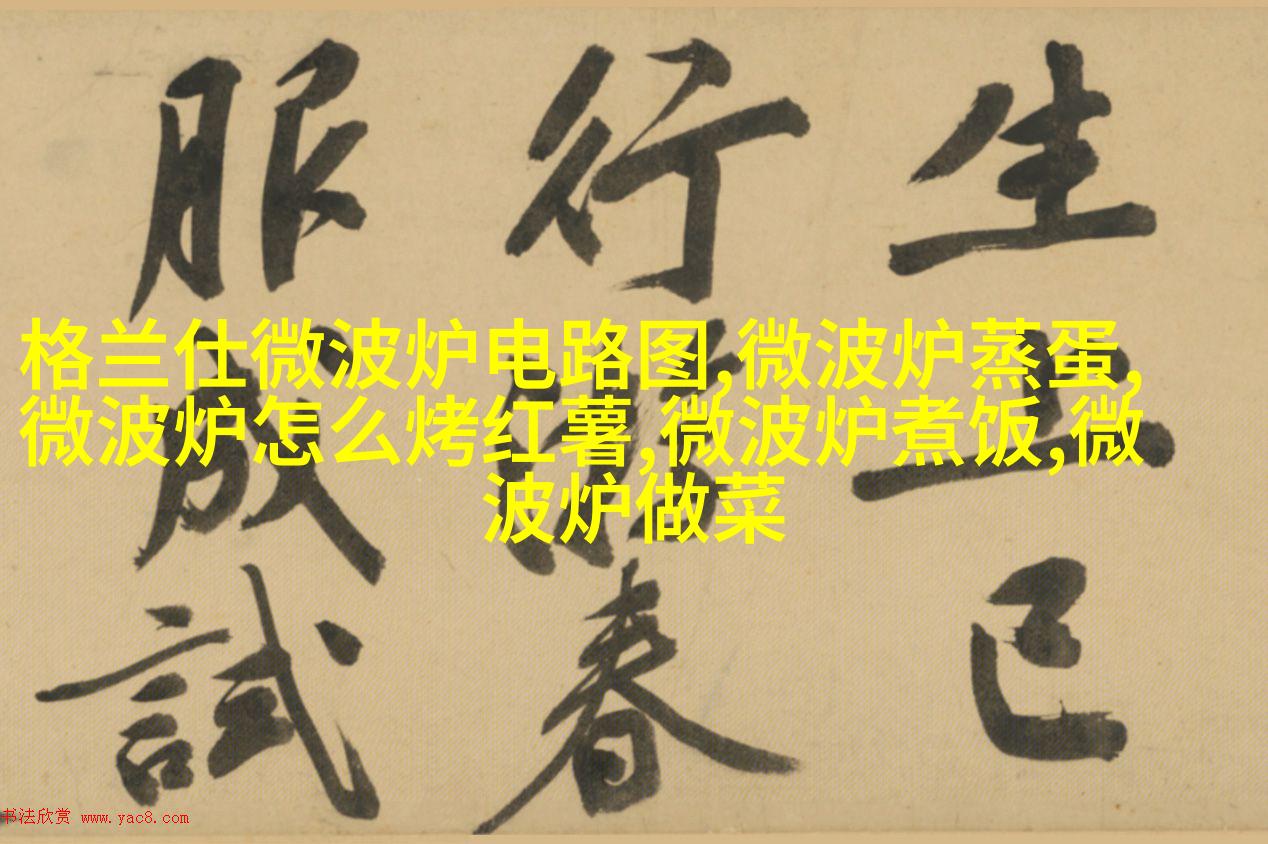 生已
行春
服成試
格兰仕微波炉电路图,微波炉蒸蛋,
微波炉怎么烤红薯,微波炉煮饭,微
波炉做菜
书法欣赏 www.yac8.com